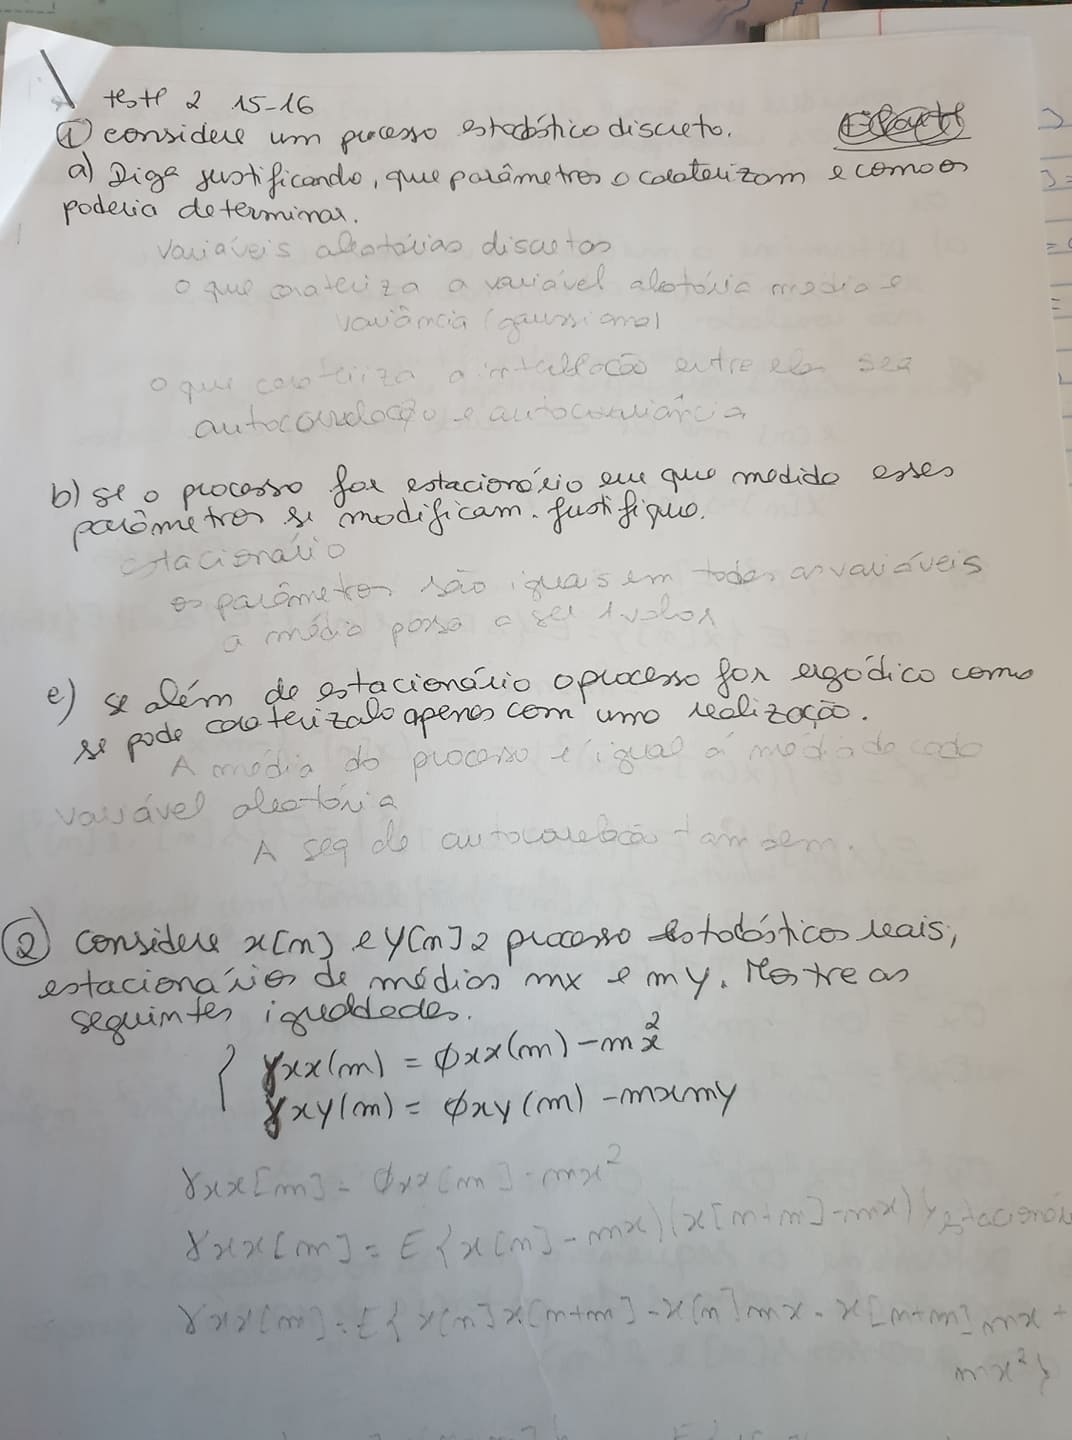 teste 2 15-16
① considere um processo estocástico discreto.
a) Diga justificando, que parâmetros o caraterizam e como os
poderia determinar.
variáveis aleatórias discretas
o que carateriza a variável aleatória media e
variância (gaussiana)
o que carateriza a interlação entre elas sea
autocorrelação e autocovariância
b) se o processo for estacionário em que medida esses
parâmetros se modificam. Justifique.
estacionário
os parâmetros são iguais em todas as variáveis
a média passa a ser 1 valor
c) se além de estacionário o processo for ergódico como
se pode caraterizalo apenas com uma realização.
A média do processo é igual á média de cada
variável aleatória
A seq de autocorrelação tambem.
② considere x[n] e y[n] 2 processo estocásticos reais,
estacionários de médias mx e my. Mostre as
seguintes igualdades.
γxx(m) = ϕxx(m) - mx²
γxy(m) = ϕxy(m) - mxmy
γxx[m] = ϕxx[m] - mx²
γxx[m] = E{x[n] - mx)(x[n+m] - mx)}
γxx[m] = E{x[n]x[n+m] - x[n]mx - x[n+m]mx +
mx²}